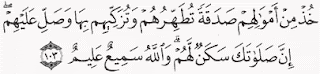 خُذْ مِنْ أَمْوَٰلِهِمْ صَدَقَةً تُطَهِّرُهُمْ وَتُزَكِّيهِم بِهَا وَصَلِّ عَلَيْهِمْ ۖ
إِنَّ صَلَوٰتَكَ سَكَنٌ لَّهُمْ ۗ وَٱللَّهُ سَمِيعٌ عَلِيمٌ ١٠٣